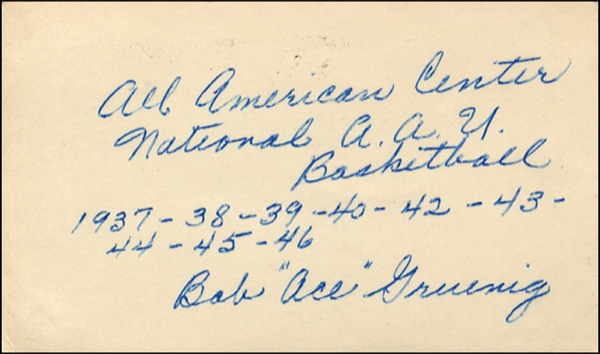 All American Center
National A.A.U.
Basketball
1937-38-39-40-42-43-
44-45-46
Bob "Ace" Gruenig